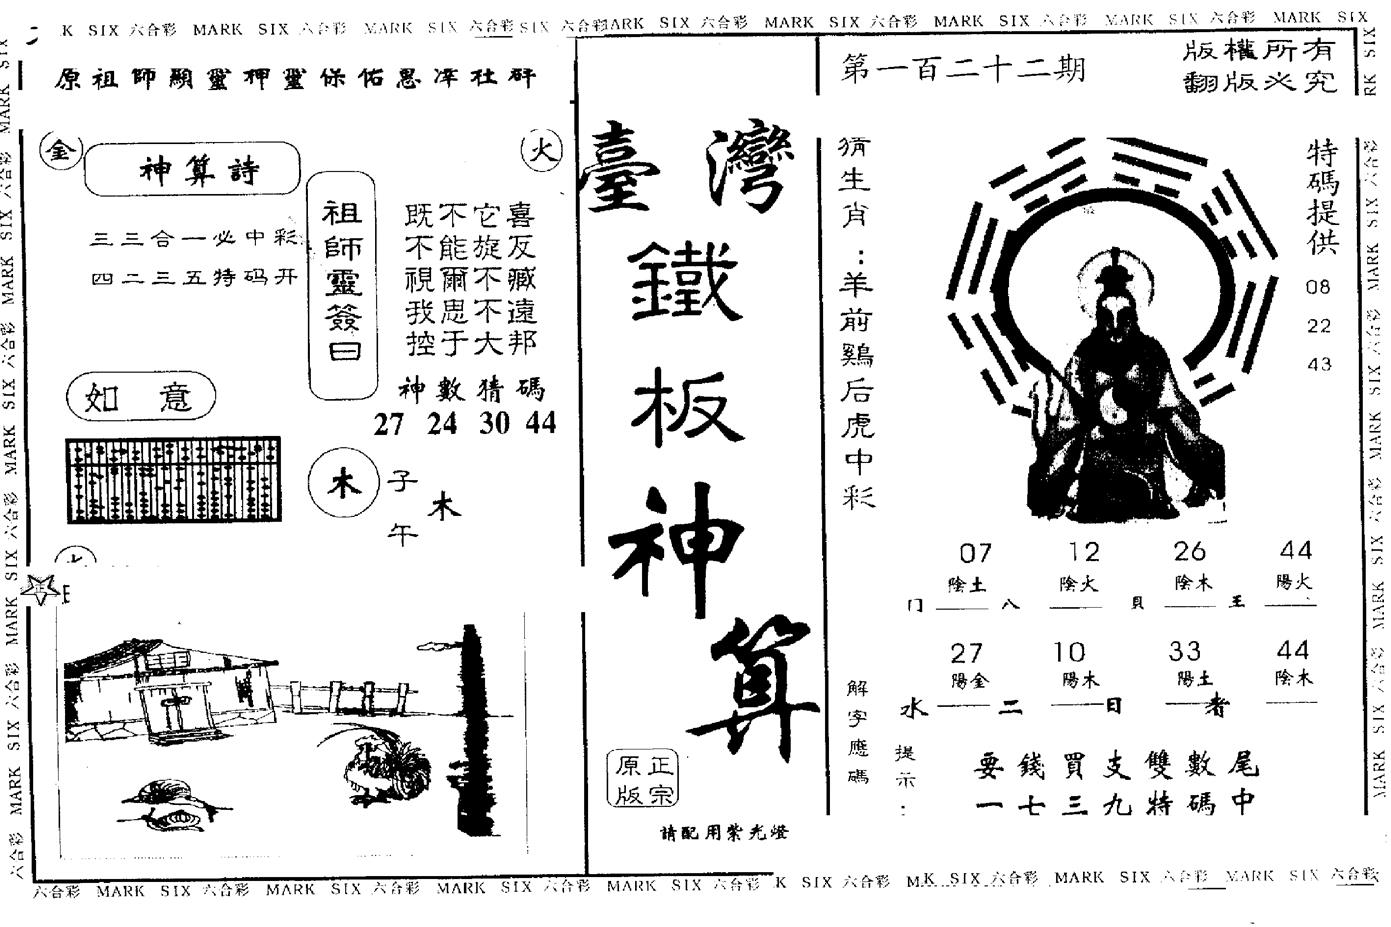 K SIX 六合彩 MARK SIX 六合彩 MARK SIX 六合彩 SIX 六合彩 ARK SIX 六合彩 MARK SIX 六合彩 MARK SIX 六合彩 MARK SIX 六合彩 MARK SIX
原祖師顯靈押靈保佑恩澤社群
金
火
神算詩
三三合一必中彩
四二三五特码开
祖師靈簽曰
既不它喜
不能旋反
視爾不臧
我思不遠
控于大邦
神數猜碼
27 24 30 44
如意
木
子
午
木
臺灣
鐵板神算
原正
版宗
請配用紫光燈
第一百二十二期
版權所有
翻版必究
猜生肖：羊前鷄后虎中彩
特碼提供
08
22
43
07 12 26 44
陰土 陰火 陰木 陽火
门 八 貝 王
27 10 33 44
陽金 陽木 陽土 陰木
水 二 日 者
解字應碼
提示：
要錢買支雙數尾
一七三九特碼中
六合彩 MARK SIX 六合彩 MARK SIX 六合彩 MARK SIX 六合彩 MARK SIX 六合彩 K SIX 六合彩 M K SIX 六合彩 MARK SIX 六合彩 MARK SIX 六合彩